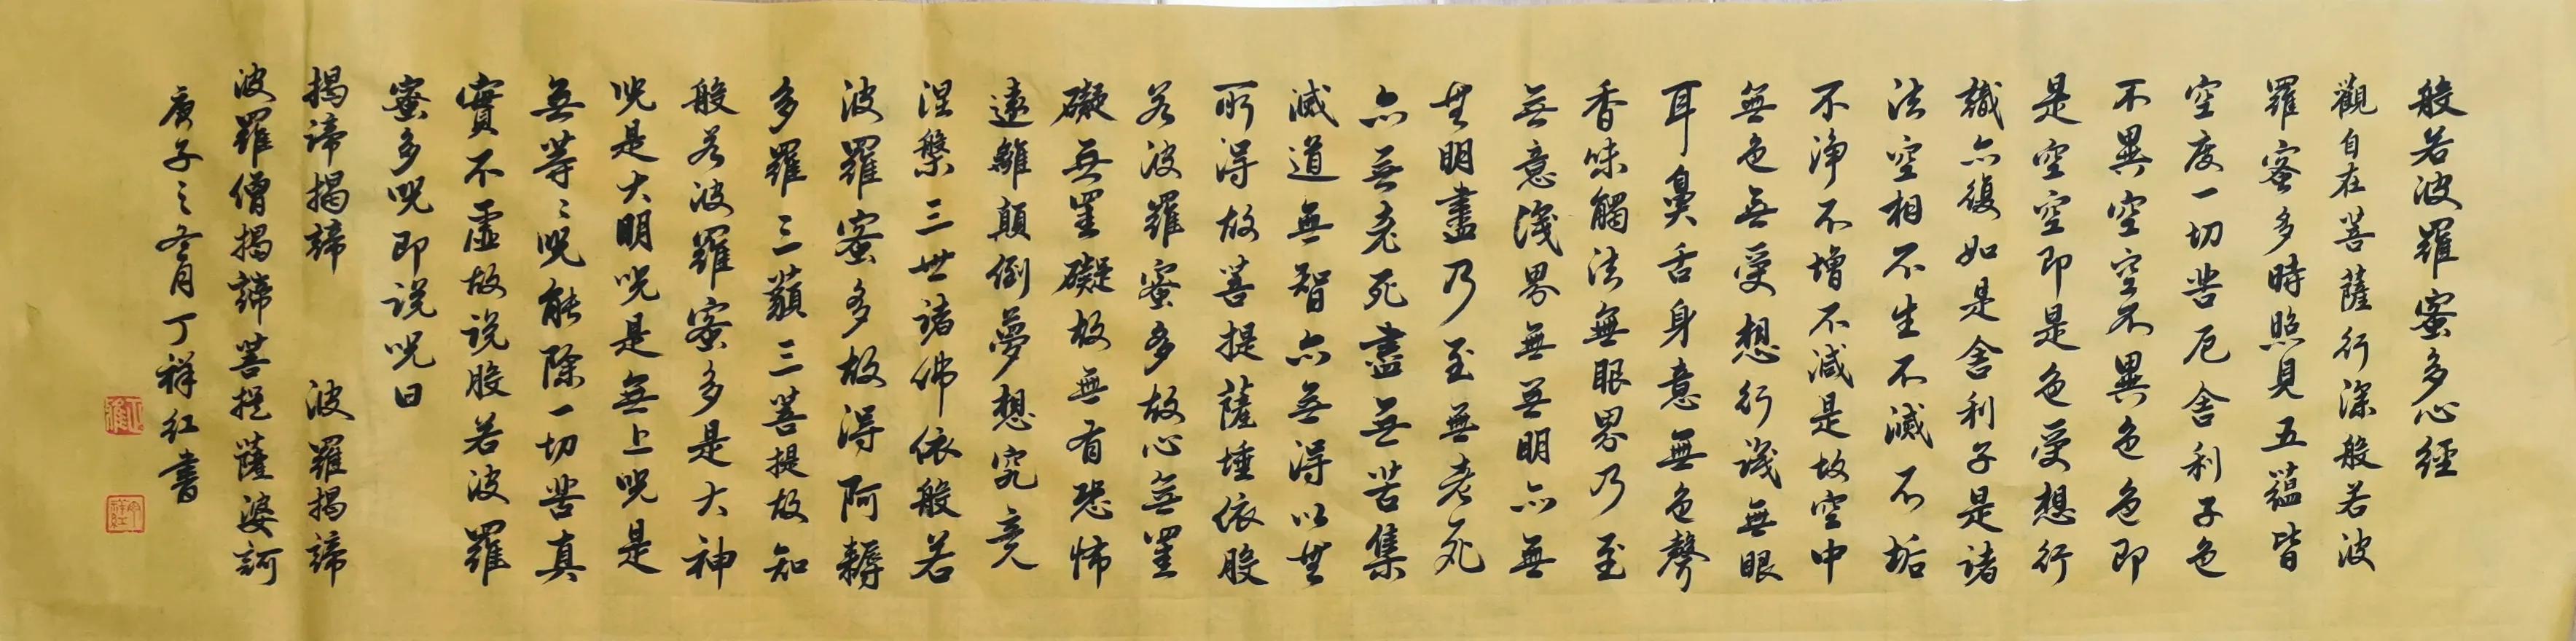 般若波羅蜜多心經
觀自在菩薩行深般若波
羅蜜多時照見五蘊皆
空度一切苦厄舍利子色
不異空空不異色色即
是空空即是色受想行
識亦復如是舍利子是諸
法空相不生不滅不垢
不淨不增不減是故空中
無色無受想行識無眼
耳鼻舌身意無色聲
香味觸法無眼界乃至
無意識界無無明亦無
無明盡乃至無老死
亦無老死盡無苦集
滅道無智亦無得以無
所得故菩提薩埵依般
若波羅蜜多故心無罣
礙無罣礙故無有恐怖
遠離顛倒夢想究竟
涅槃三世諸佛依般若
波羅蜜多故得阿耨
多羅三藐三菩提故知
般若波羅蜜多是大神
咒是大明咒是無上咒是
無等等咒能除一切苦真
實不虛故說般若波羅
蜜多咒即說咒曰
揭諦揭諦 波羅揭諦
波羅僧揭諦菩提薩婆訶
庚子之冬月丁祥紅書